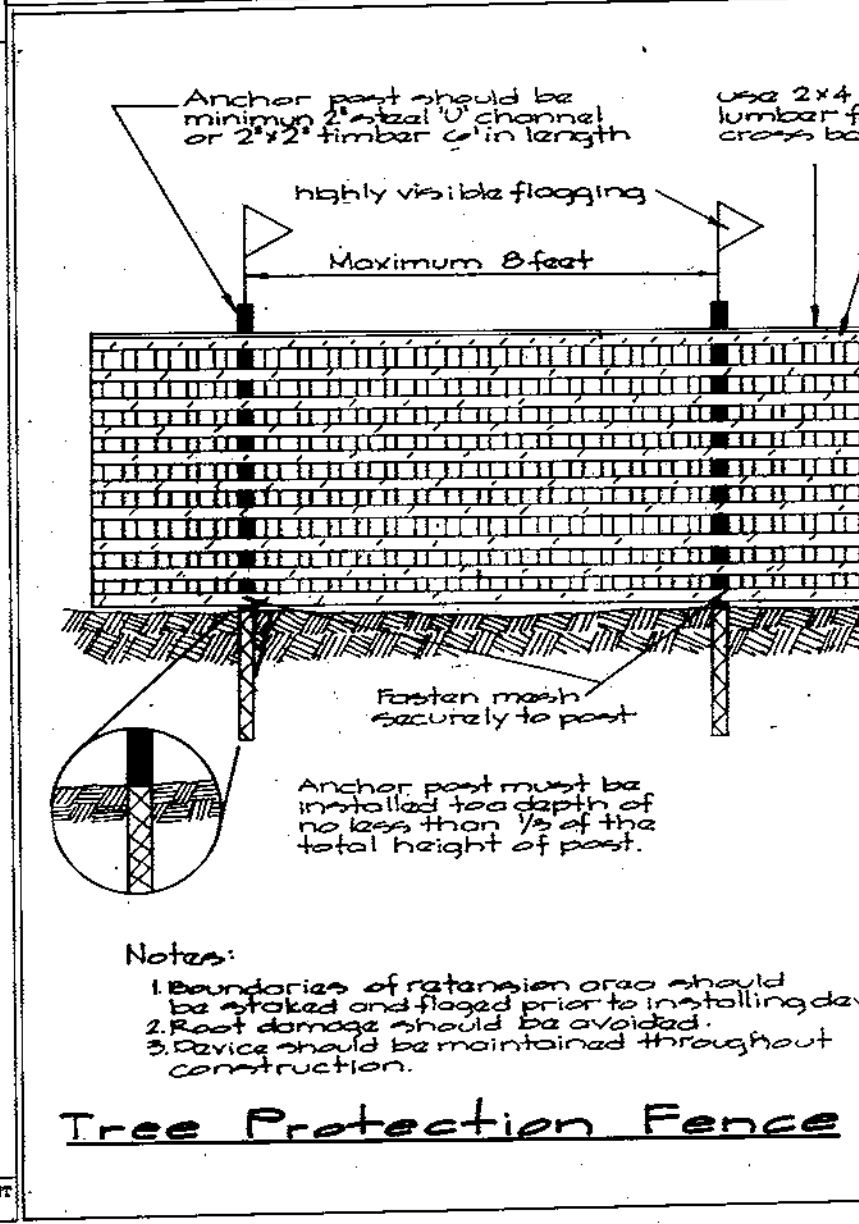 Anchor post should be
minimun 2" steel 'U' channel
or 2"x2" timber 6' in length
use 2x4
lumber f
cross ba
highly visible flagging
Maximum 8 feet
Fasten mesh
securely to post
Anchor post must be
installed to a depth of
no less than 1/3 of the
total height of post.
Notes:
1. Boundaries of retension area should
be staked and flaged prior to installing dev
2. Root damage should be avoided.
3. Device should be maintained throughout
construction.
Tree Protection Fence